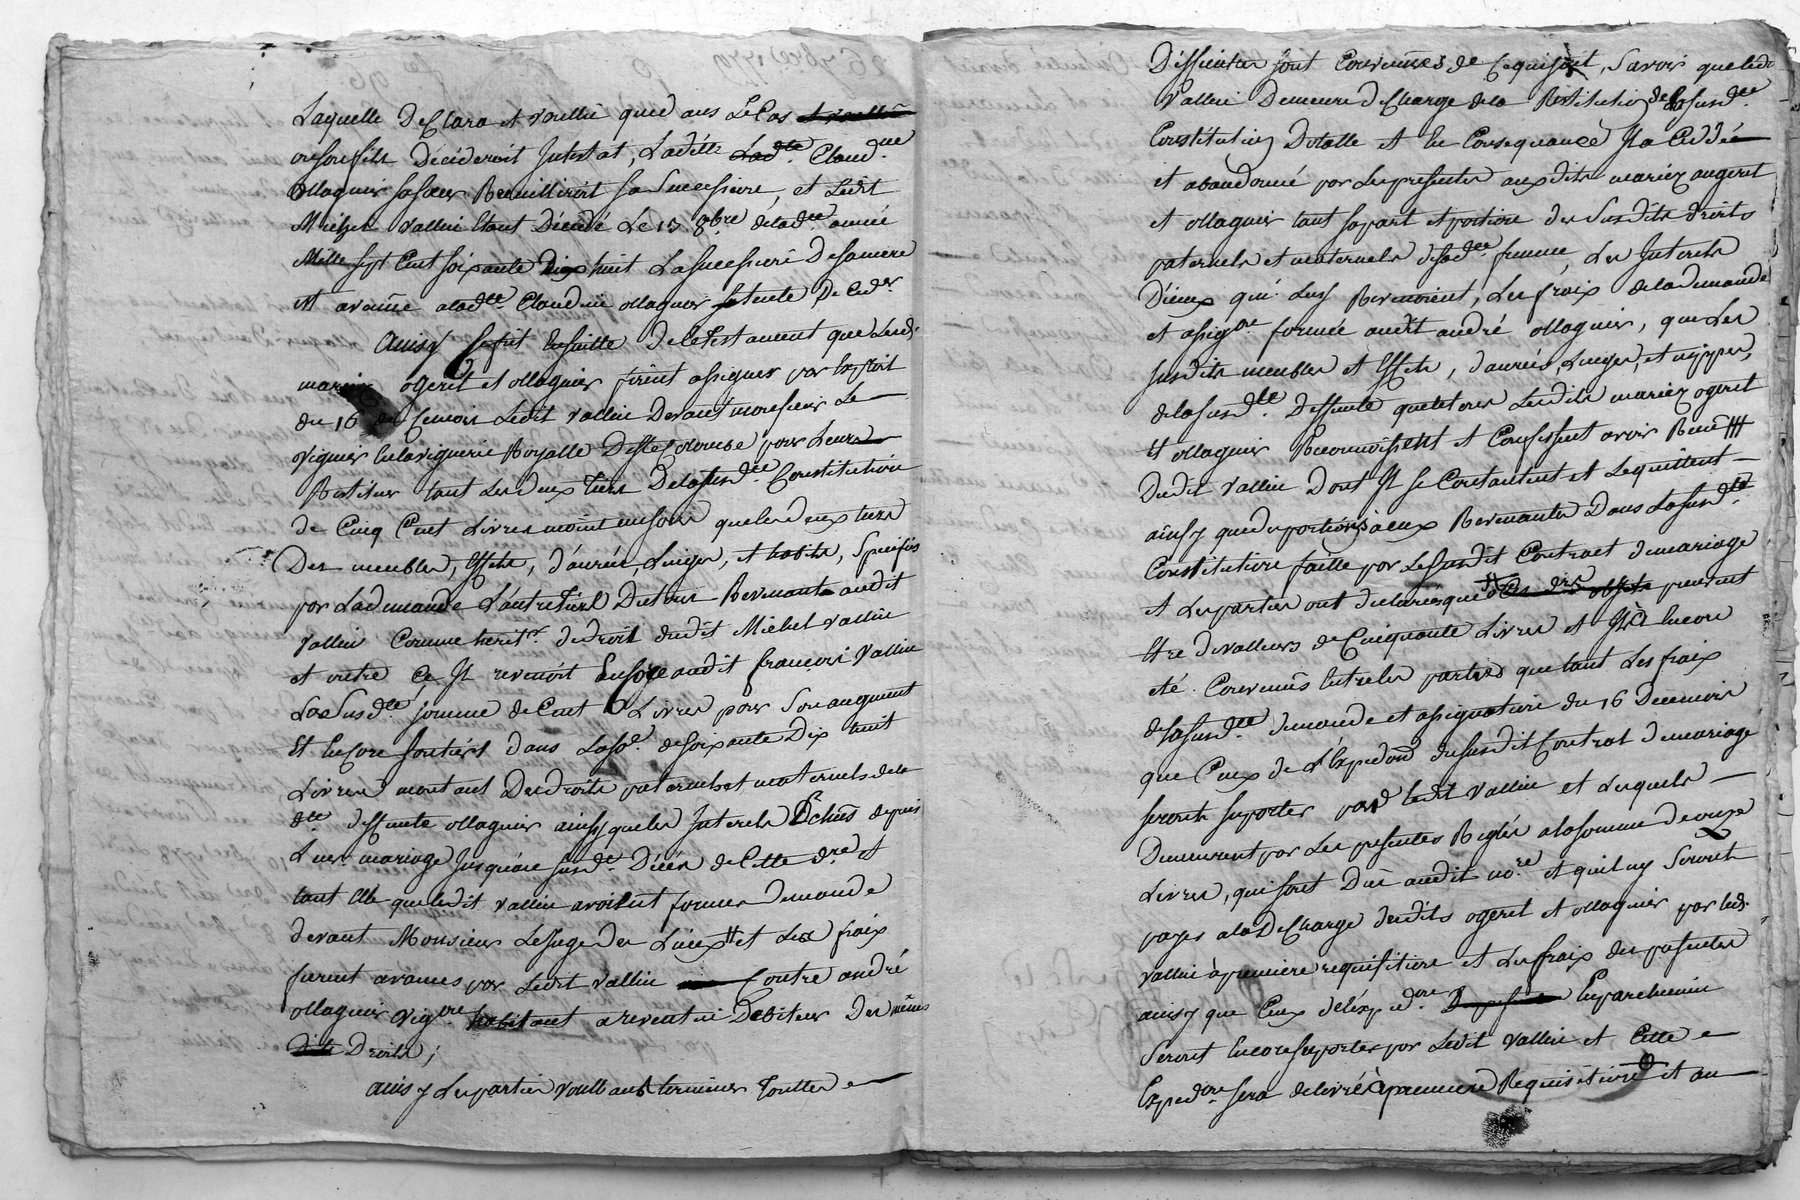 Laquelle declara et voullu que dans Le Cas et voullu
ou son fils décéderoit Intestat, Ladite Lad.te Claud.ne
ollagnier sa sœur Recuilliroit sa Succession, et Ledit
Michel vallin Etant Décédé Le 15 8bre de lad.te année
Mille sept Cent soixante Dix huit La succession De sa mere
est avenüe a lad.te Claudine ollagnier sa tente
Ainsy Ce fut Ensuitte de Ce testament que Lesd.
mariez ogerit et ollagnier firent assigner par Exploit
du 16 de Ce mois Ledit vallin Devant monsieur Le
viguier En la viguerie Royalle De Ste Colombe pour Leurs
Restituer tant Les deux tiers De la susd.te Constitution
de Cinq Cent Livres moins encore que les deux tiers
Des meubles, Effets, d'aurés, Linges, et habits, specifiés
par La demande L'autre tiers Du tout Revenants audit
vallin Comme herit.r de droit dudit Michel vallin
et outre Ce Il revenoit Encore audit françois vallin
La Susd.te somme de Cent Livres pour Son augment
Et Encore
Livres montant Des droits paternels et maternels de la
d.te deffunte ollagnier ainsy que les Interets Echus depuis
Leur mariage Jusqu'au susd. Décés de Cette d.re et
tant Elle que ledit vallin avoient formés demande
devant Monsieur Le Juge des Lieux et Les fraix
furent avancés par Ledit vallin Contre andré
ollagnier vig.on habitant a reventin Debiteur Des mêmes
Dits Droits;
ainsy Les parties voullant terminer Touttes
Difficultes sont Convenües de Ce qui suit, Savoir que led.
vallin Demeure déchargé de la Restitution de la susd.te
Constitution Dotalle et En Consequance Il a Ceddé
et abandonné par Les presentes auxdits mariez ougerit
et ollagnier tant sa part et portion des Susdits droits
paternels et maternels de sad.te femme, Les Interets
D'ieux qui Luy Revenoient, Les fraix de la demande
et assig.on formée audit andré ollagnier, que Les
susdits meubles et Effets, d'aurés, Linges, et nippes,
de la susd.te Deffunte que le tout Lesdits mariez ogerit
Et ollagnier Reconnoissent et Confessent avoir Reçu
Dudit vallin Dont Il se Contantent et Le quittent
ainsy que des portions à eux Revenantes Dans La susd.te
Constitution faitte par Le susdit Contract de mariage
et Les parties ont declaré que Ces d.rs objets peuvent
Etre de valleurs de Cinquante Livres et Il a Encore
eté Convenus Entre les parties que tant Les fraix
de la susd.te demande et assignation du 16 Du mois
que Ceux de L'Expedon du susdit Contrat de mariage
seront suportés par ledit vallin et Lesquels
Demeurent par Les presentes Reglés a la somme de onze
Livres, qui sont Düe audit no.re et qu'il seront
payés a la Decharge desdits ogerit et ollagnier par led.
vallin à premiere requisition et Les fraix des presentes
ainsy que Ceux de l'éxped.on En parchemin
Seront Encore suportés par Ledit vallin et Cette
Exped.on sera delivrée à premiere Requisition et au